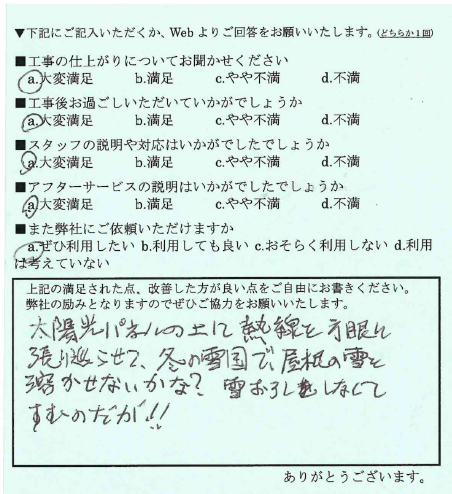 ▼下記にご記入いただくか、Webよりご回答をお願いいたします。(どちらか1回)
■工事の仕上がりについてお聞かせください
a.大変満足 b.満足 c.やや不満 d.不満
■工事後お過ごしいただいていかがでしょうか
a.大変満足 b.満足 c.やや不満 d.不満
■スタッフの説明や対応はいかがでしたでしょうか
a.大変満足 b.満足 c.やや不満 d.不満
■アフターサービスの説明はいかがでしたでしょうか
a.大変満足 b.満足 c.やや不満 d.不満
■また弊社にご依頼いただけますか
a.ぜひ利用したい b.利用しても良い c.おそらく利用しない d.利用
は考えていない
上記の満足された点、改善した方が良い点をご自由にお書きください。
弊社の励みとなりますのでぜひご協力をお願いいたします。
太陽光パネルの上に熱線を方眼に
張り巡らせて、冬の雪国で、屋根の雪を
溶かせないかな? 雪おろしをしなくて
すむのだが!!
ありがとうございます。